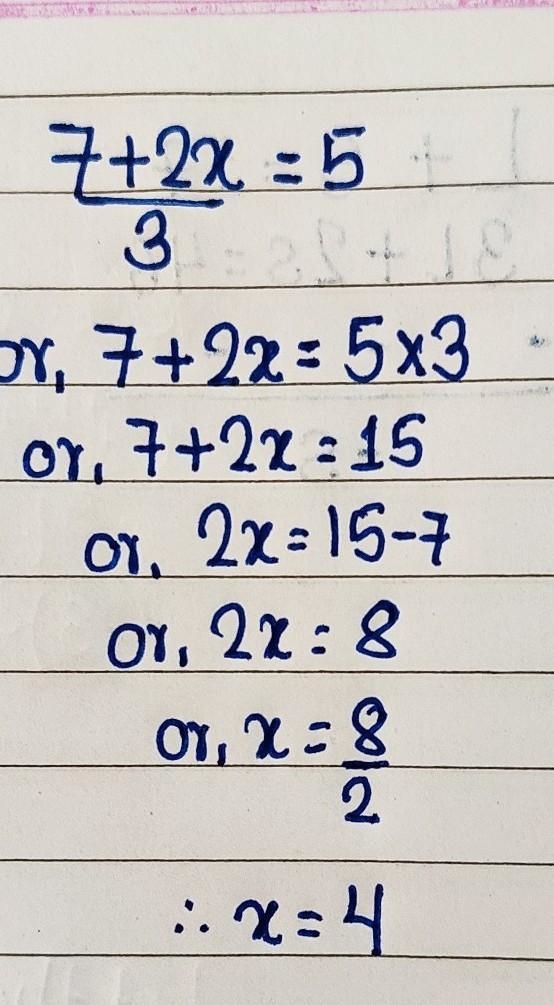 7+2x = 5
3
or, 7+2x = 5×3
or, 7+2x = 15
or, 2x = 15-7
or, 2x = 8
or, x = 8
2
∴ x = 4